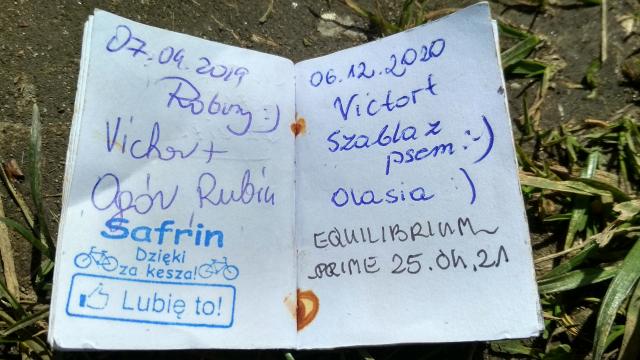 07.04.2019
Robuzy :)
Vichort
Ogór Rubin
Safrin
Dzięki
za kesza!
Lubię to!
06.12.2020
Victort
Szabla z
psem :-)
Olasia :)
EQUILIBRIUM
PRIME 25.04.21